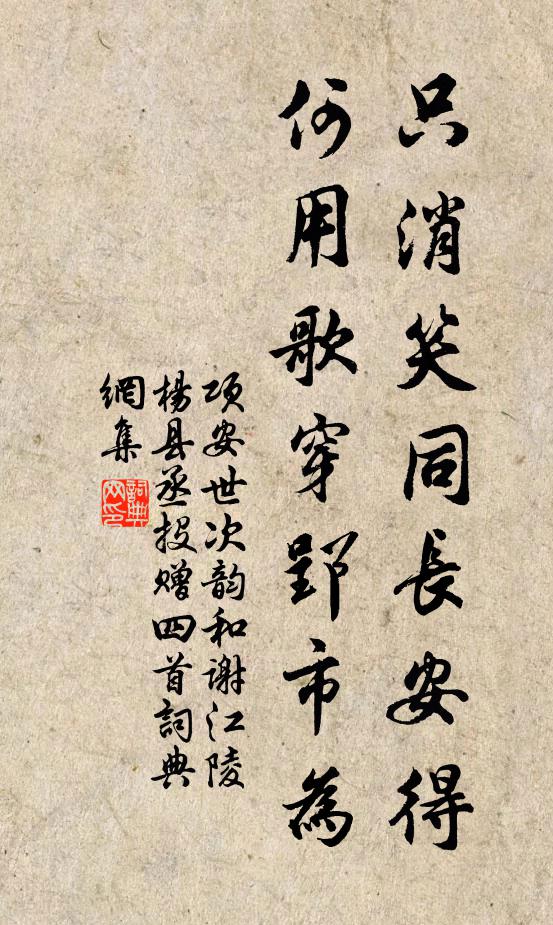 只消笑同長安得
何用歌穿郢市為
项安世次韵和谢江陵
楊县丞投赠四首詞典
網集
詞典
网印